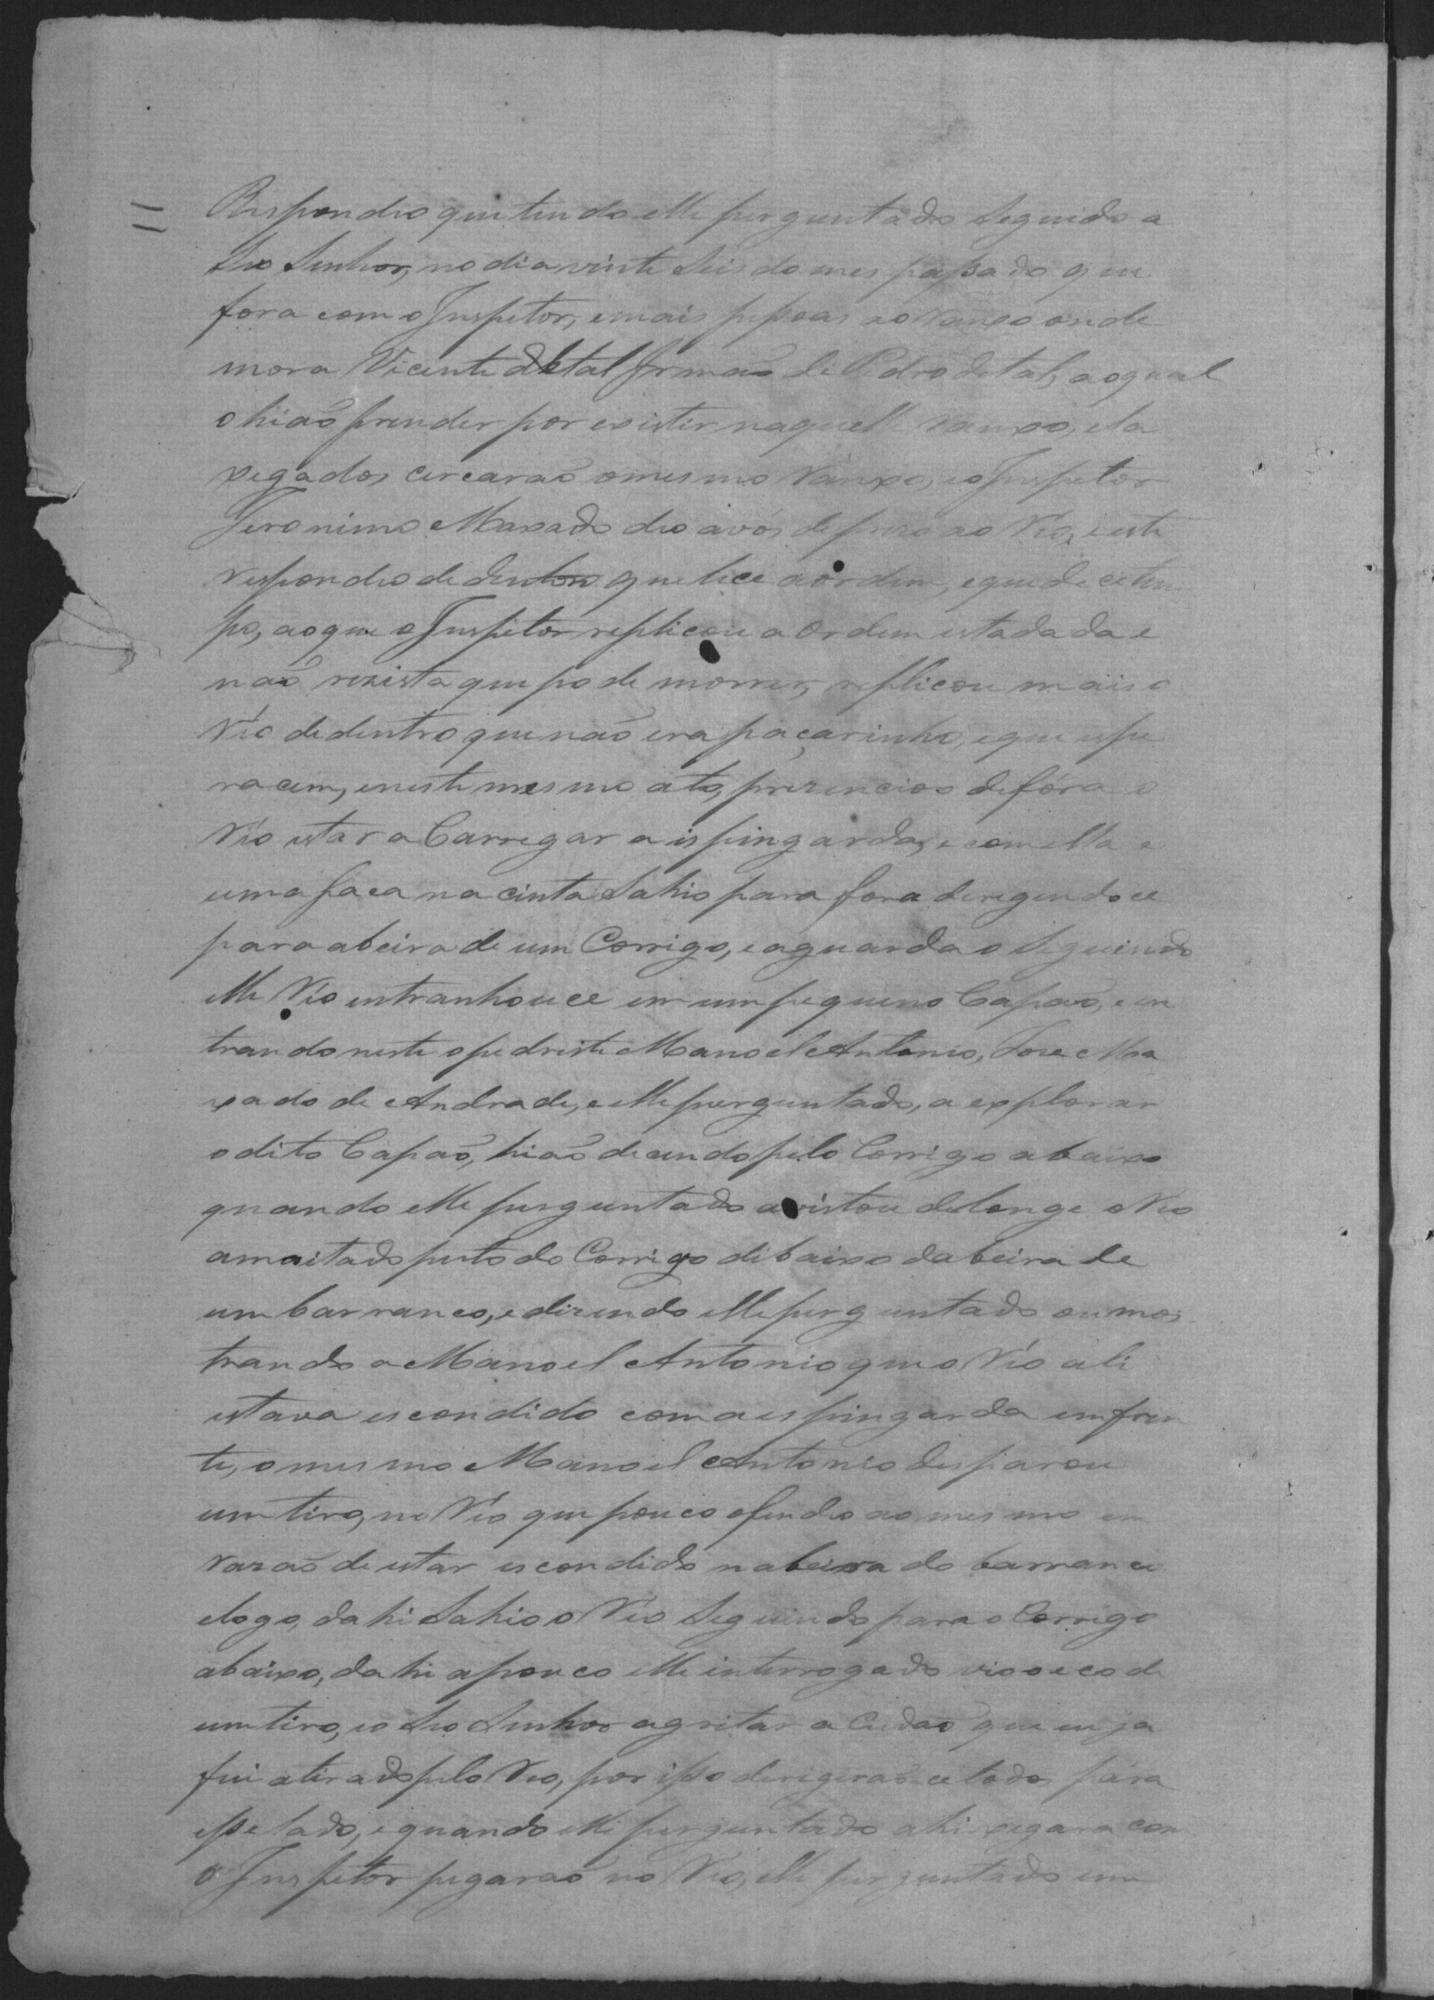 Respondeo que tendo elle perguntado seguido a
seo Senhor, no dia vinte seis do mes passado que
fora com o Inspetor, e mais pessoas ao ranxo onde
mora Vicente de tal Irmão de Pedro de tal, a o qual
o hião prender por existir naquelle ranxo, e la
xegados cercarão o mesmo ranxo, e o Inspetor
Jeronimo Maxado deo a vós de prezo ao Réo, e este
respondeo de dentro que lece a ordem, e que dece tem
po, ao que o Inspetor replicou a ordem esta dada e
não rezista que pode morrer, replicou mais o
Réo de dentro que não era paçarinho, e que espe
racem, e neste mesmo ato, prezenciou de fóra o
Réo estar a Carregar a ispingarda, e com ella e
uma faca na cinta sahio para fora deregindoce
para a beira de um Corrigo, e a guarda o seguindo
elle Réo entranhouce em um pequeno Capão, e en
trando neste o pedreste Manoel Antonio, Jose Ma
xado de Andrade, e elle perguntado, a explorar
o dito Capão, hião decendo pelo Corrigo abaixo
quando elle perguntado avistou de longe o Reo
amoitado perto do Corrigo dibaixo da beira de
um barranco, e dizendo elle perguntado ou mos
trando a Manoel Antonio que o Réo ali
estava escondido com a espingarda em fren
te, o mesmo Manoel Antonio desparou
um tiro, no Réo que pouco ofendeo ao mesmo em
razão de estar escondido na beira do barranco
e logo, dahi sahio o Réo seguindo para o Corrigo
abaixo, dahi a pouco elle interrogado vio o eco de
um tiro, e o seo Senhor a gritar a Cudão que eu ja
fui atirado pelo Reo, por isso derigirão ce todos para
esse lado, e quando elle perguntado ahi xegara com
o Inspetor pegarão no Reo, elle perguntado em